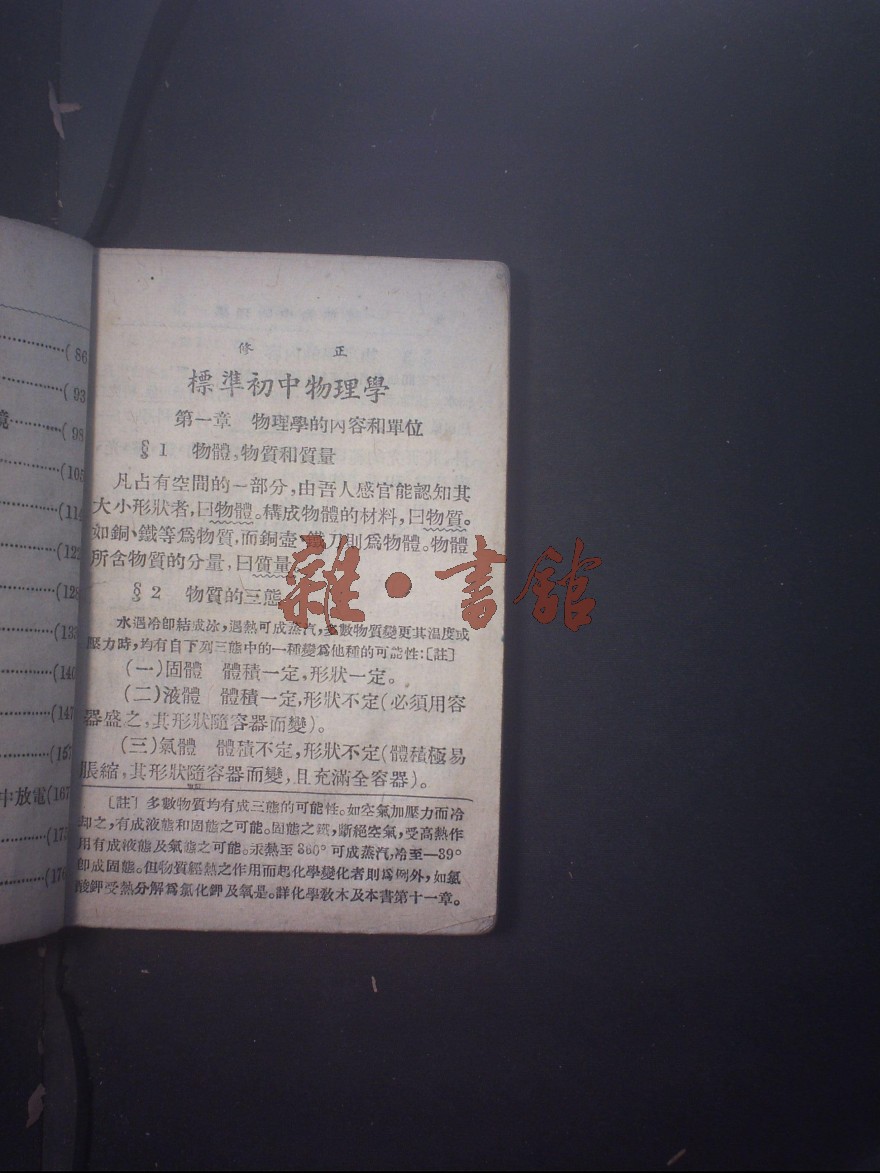 ……………( 86
……………( 93
……………( 98
……………(105
……………(114
……………(122
……………(128
……………(133
……………(140
……………(147
……………(157
中放電(167
……………(173
……………(176
修 正
標準初中物理學
第一章 物理學的內容和單位
§ 1 物體,物質和質量
凡占有空間的一部分,由吾人感官能認知其
大小形狀者,曰物體。構成物體的材料,曰物質。
如銅、鐵等爲物質,而銅壺、鐵刀則爲物體。物體
所含物質的分量,曰質量
§ 2 物質的三態
水遇冷卽結成冰,遇熱可成蒸汽,多數物質變更其溫度或
壓力時,均有自下列三態中的一種變爲他種的可能性:〔註〕
(一)固體 體積一定,形狀一定。
(二)液體 體積一定,形狀不定(必須用容
器盛之,其形狀隨容器而變)。
(三)氣體 體積不定,形狀不定(體積極易
脹縮,其形狀隨容器而變,且充滿全容器)。
〔註〕 多數物質均有成三態的可能性。如空氣加壓力而冷
却之,有成液態和固態之可能。固態之鐵,斷絕空氣,受高熱作
用有成液態及氣態之可能。汞熱至360°可成蒸汽,冷至—39°
卽成固態。但物質經熱之作用而起化學變化者則爲例外,如氯
酸鉀受熱分解爲氯化鉀及氧是。詳化學敎本及本書第十一章。
雜·書館